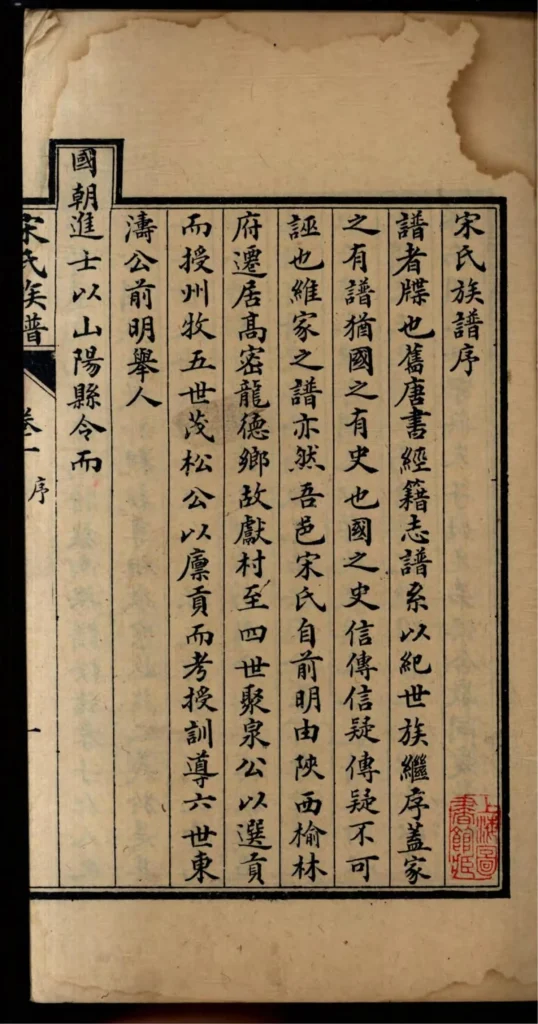 宋氏族譜序
譜者牒也舊唐書經籍志譜系以紀世族繼序蓋家
之有譜猶國之有史也國之史信傳信疑傳疑不可
誣也維家之譜亦然吾邑宋氏自前明由陝西榆林
府遷居高密龍德鄉故獻村至四世聚泉公以選貢
而授州牧五世茂松公以廩貢而考授訓導六世東
濤公前明舉人
國朝進士以山陽縣令而
宋氏族譜
卷一
序
一
上海圖書館藏